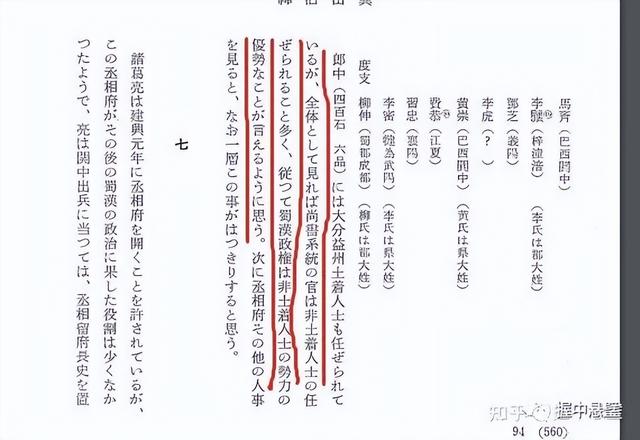 馬齊(巴西閬中)
李驤(梓潼涪) (李氏は郡大姓)
鄧芝(義陽)
李虎(?)
黄崇(巴西閬中) (黄氏は県大姓)
費恭(江夏)
習忠(襄陽)
李密(犍為武陽) (李氏は県大姓)
度支 柳伸(蜀郡成都) (柳氏は郡大姓)
郎中(四百石 六品)には大分益州土着人士も任ぜられて
いるが、全体として見れば尚書系統の官は非土着人士の任
ぜられること多く、従つて蜀漢政権は非土着人士の勢力の
優勢なことが言えるように思う。次に丞相府その他の人事
を見ると、なお一層この事がはつきりすると思う。
七
諸葛亮は建興元年に丞相府を開くことを許されているが、
この丞相府がその後の蜀漢の政治に果した役割は少くなか
つたようで、亮は関中出兵に当つては、丞相留府長史を置
94 (560)
知乎